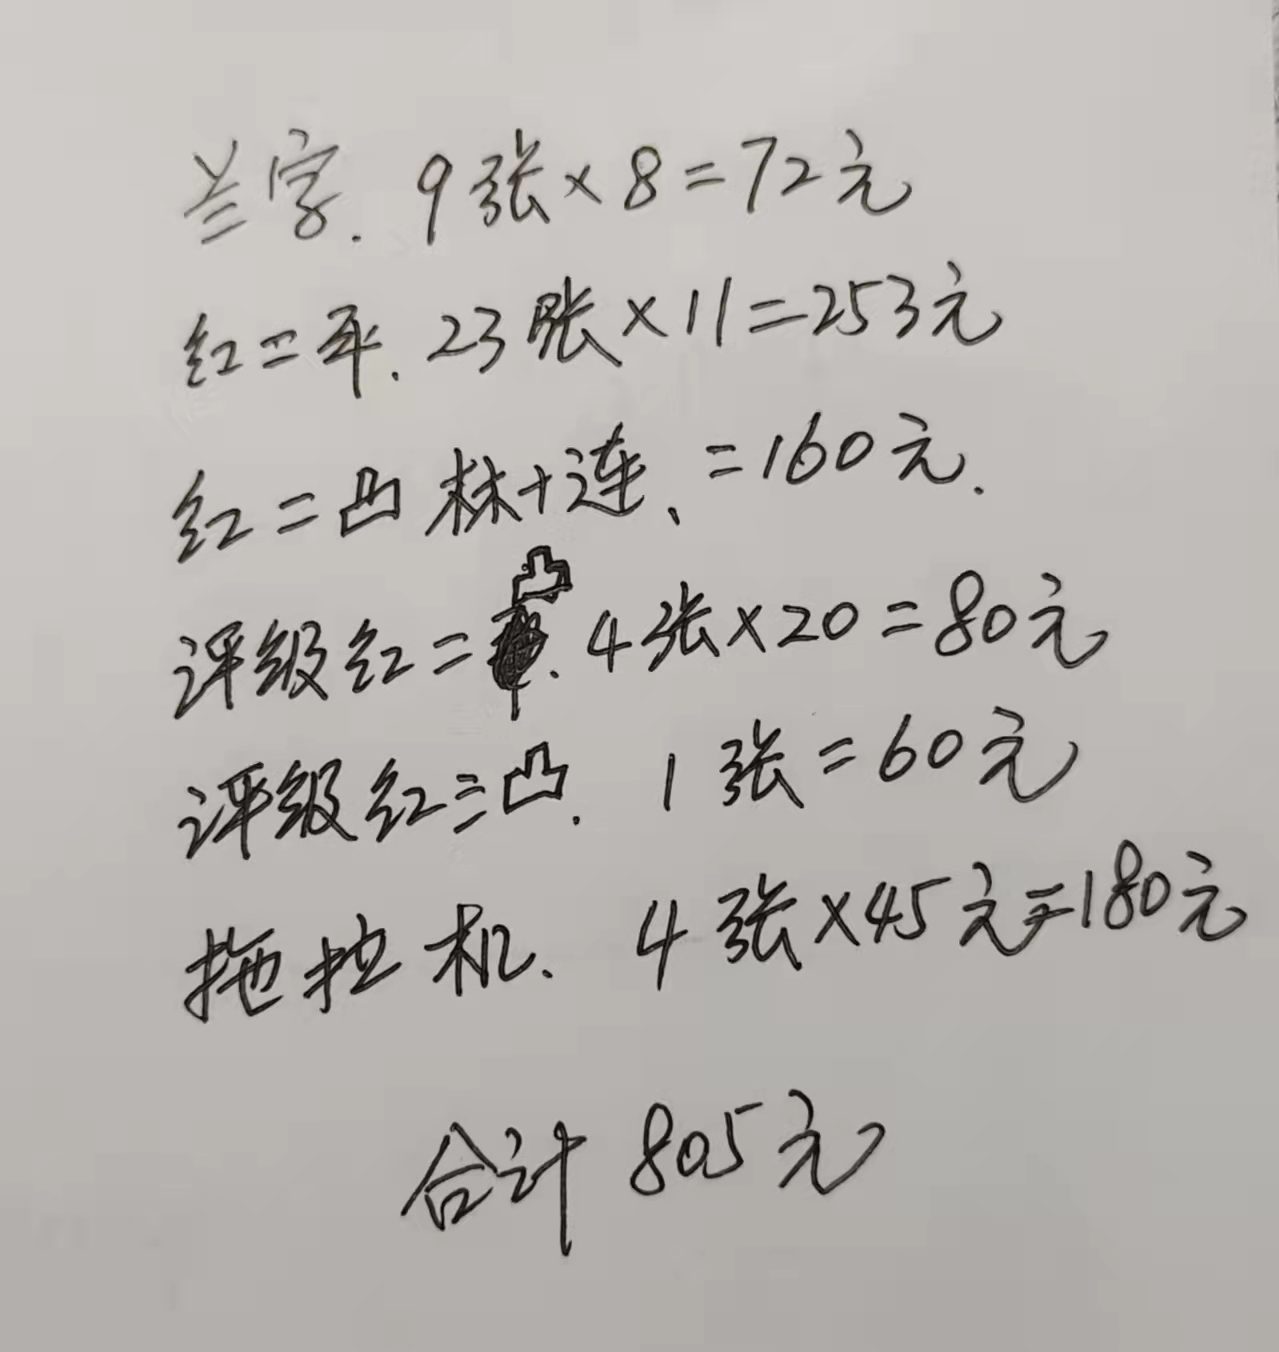 兰字. 9张×8=72元
红二平. 23张×11=253元
红二凸 标十连、=160元.
评级红二凸. 4张×20=80元
评级红三凸. 1张=60元
拖拉机. 4张×45元=180元
合计 805元